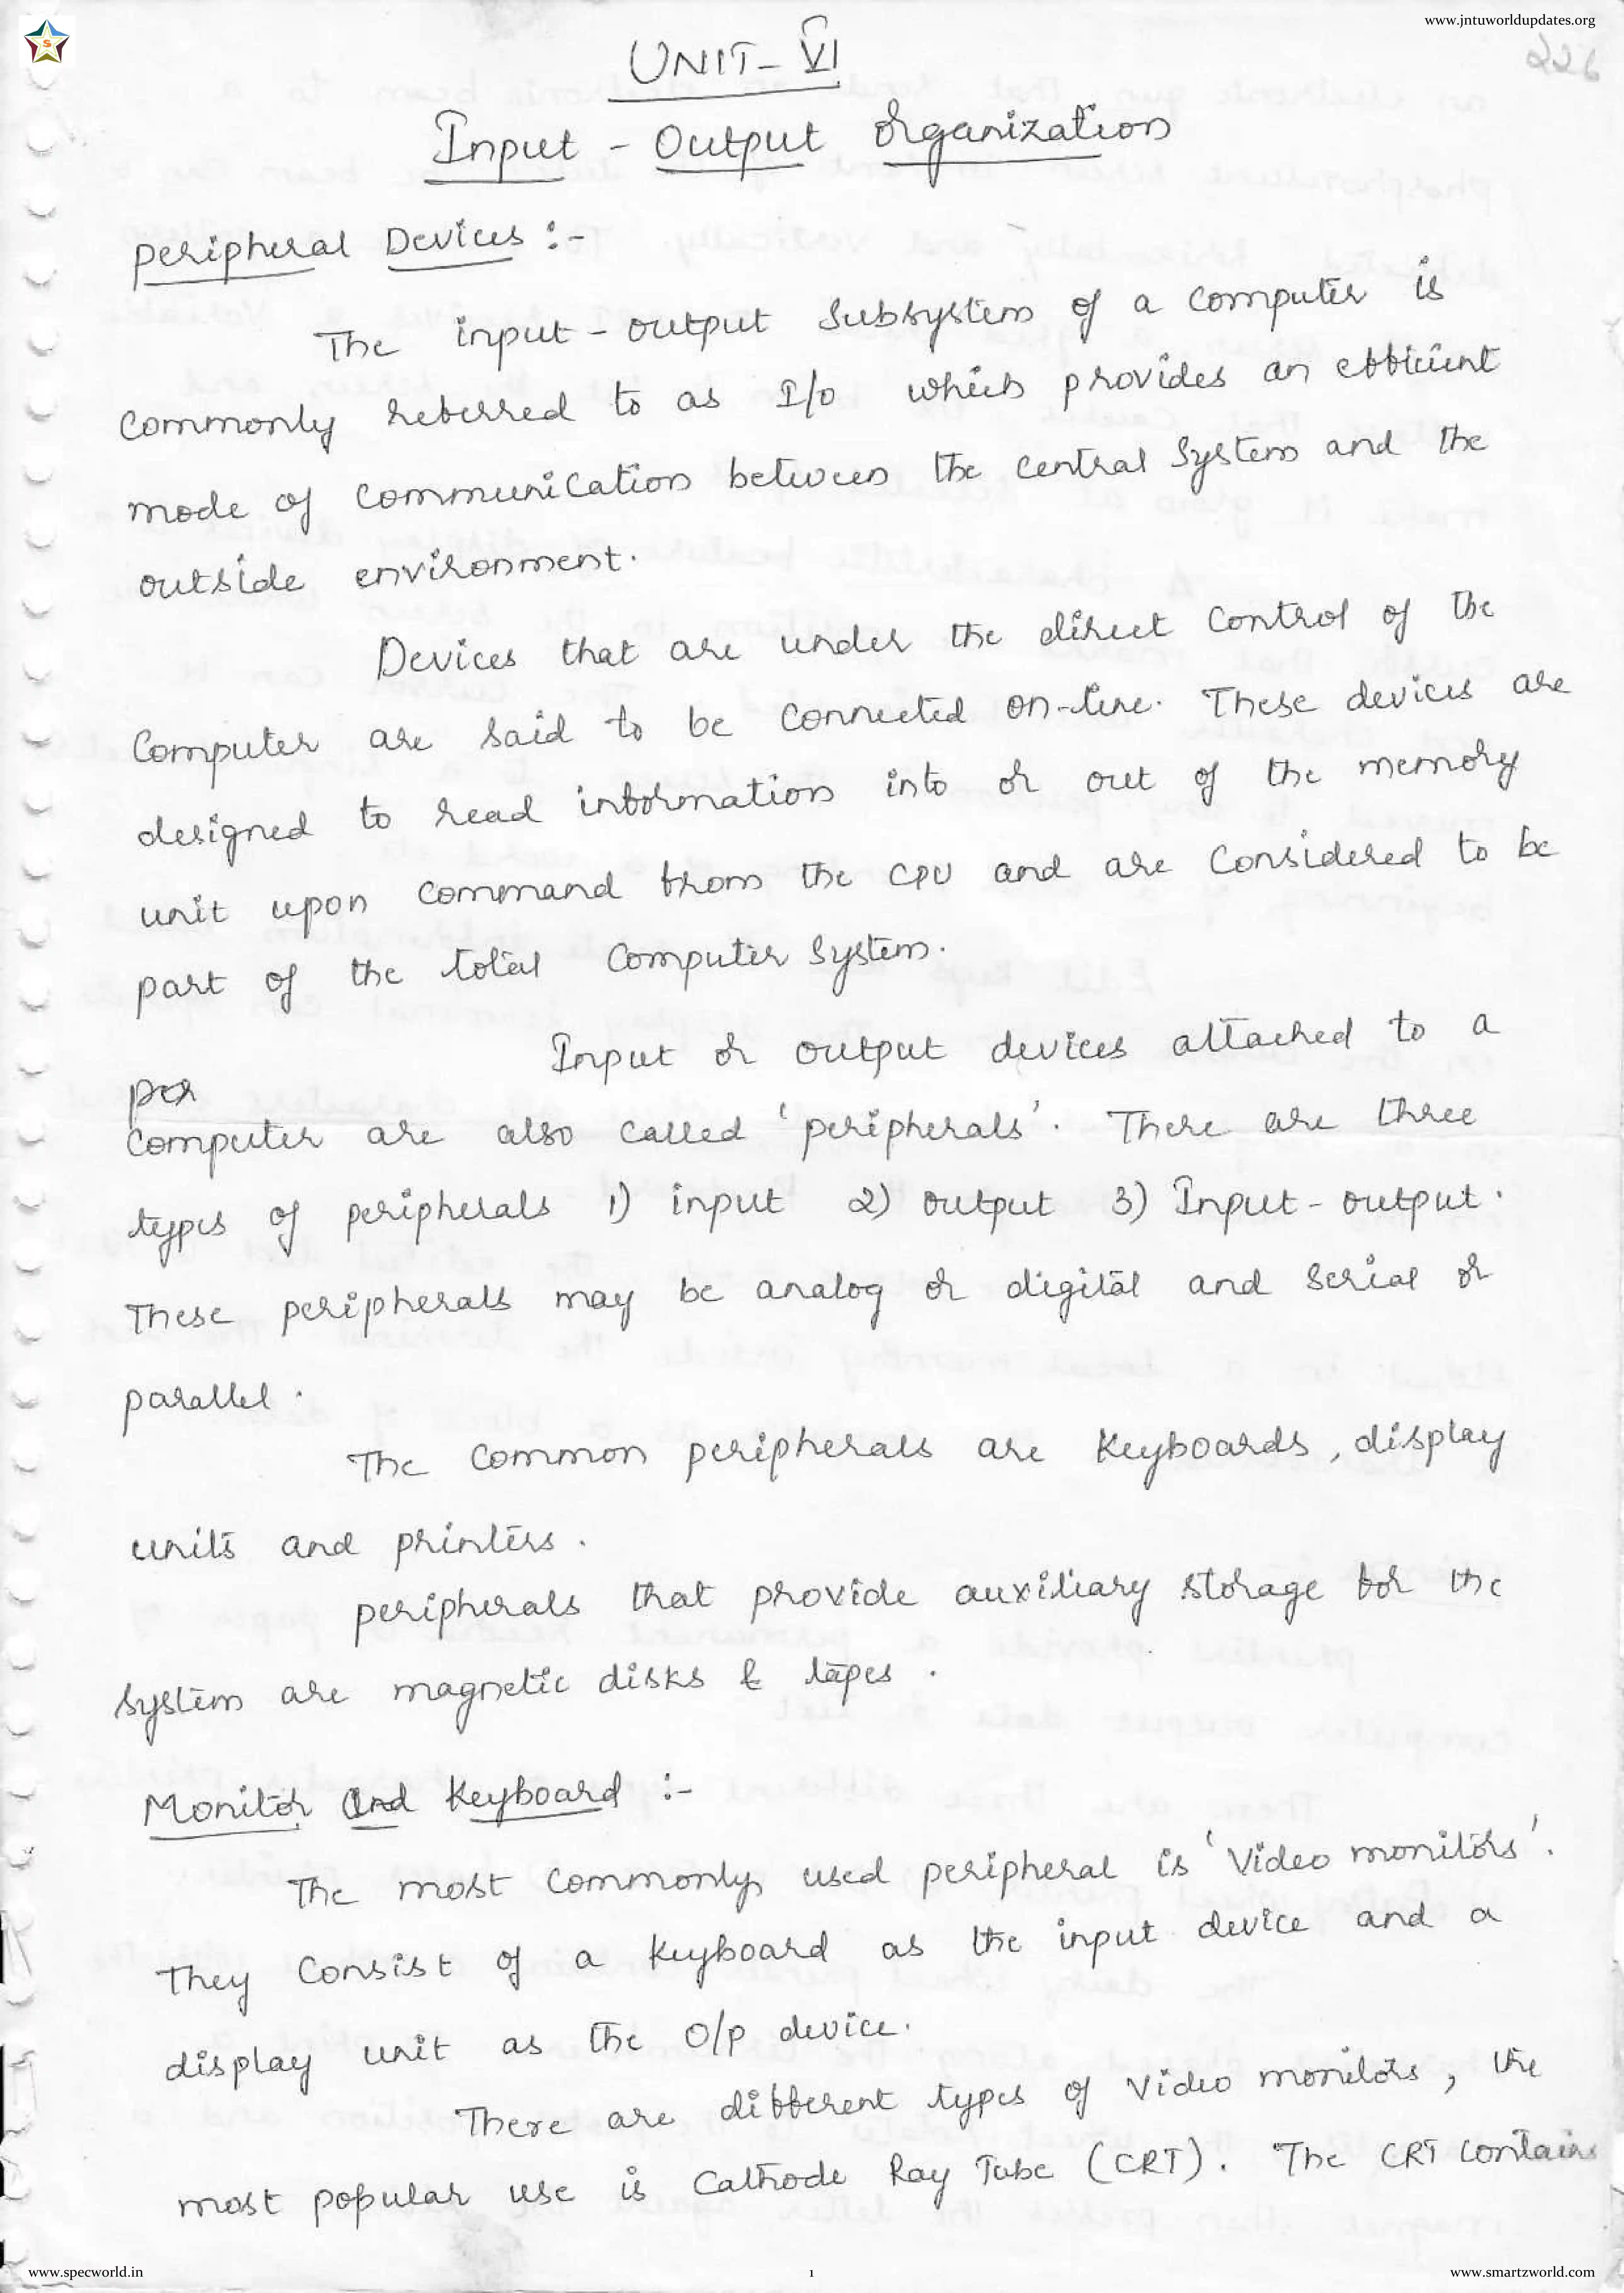 www.jntuworldupdates.org
226
UNIT-VI
Input - Output Organization
Peripheral Devices :-
The input-output Subsystem of a computer is
commonly referred to as I/o which provides an efficient
mode of communication between the central System and the
outside environment.
Devices that are under the direct control of the
Computer are said to be connected on-line. These devices are
designed to read information into or out of the memory
unit upon command from the CPU and are considered to be
part of the total Computer System.
Input or output devices attached to a
per
Computer are also called 'peripherals'. There are three
types of peripherals 1) input 2) output 3) Input-output.
These peripherals may be analog or digital and serial or
parallel.
The common peripherals are Keyboards, display
units and printers.
peripherals that provide auxiliary storage for the
System are magnetic disks & tapes.
Monitor And Keyboard :-
The most commonly used peripheral is 'Video monitors'.
They consist of a keyboard as the input device and a
display unit as the O/p device.
There are different types of video monitors, the
most popular use is Cathode Ray Tube (CRT). The CRT contains
www.specworld.in
1
www.smartzworld.com